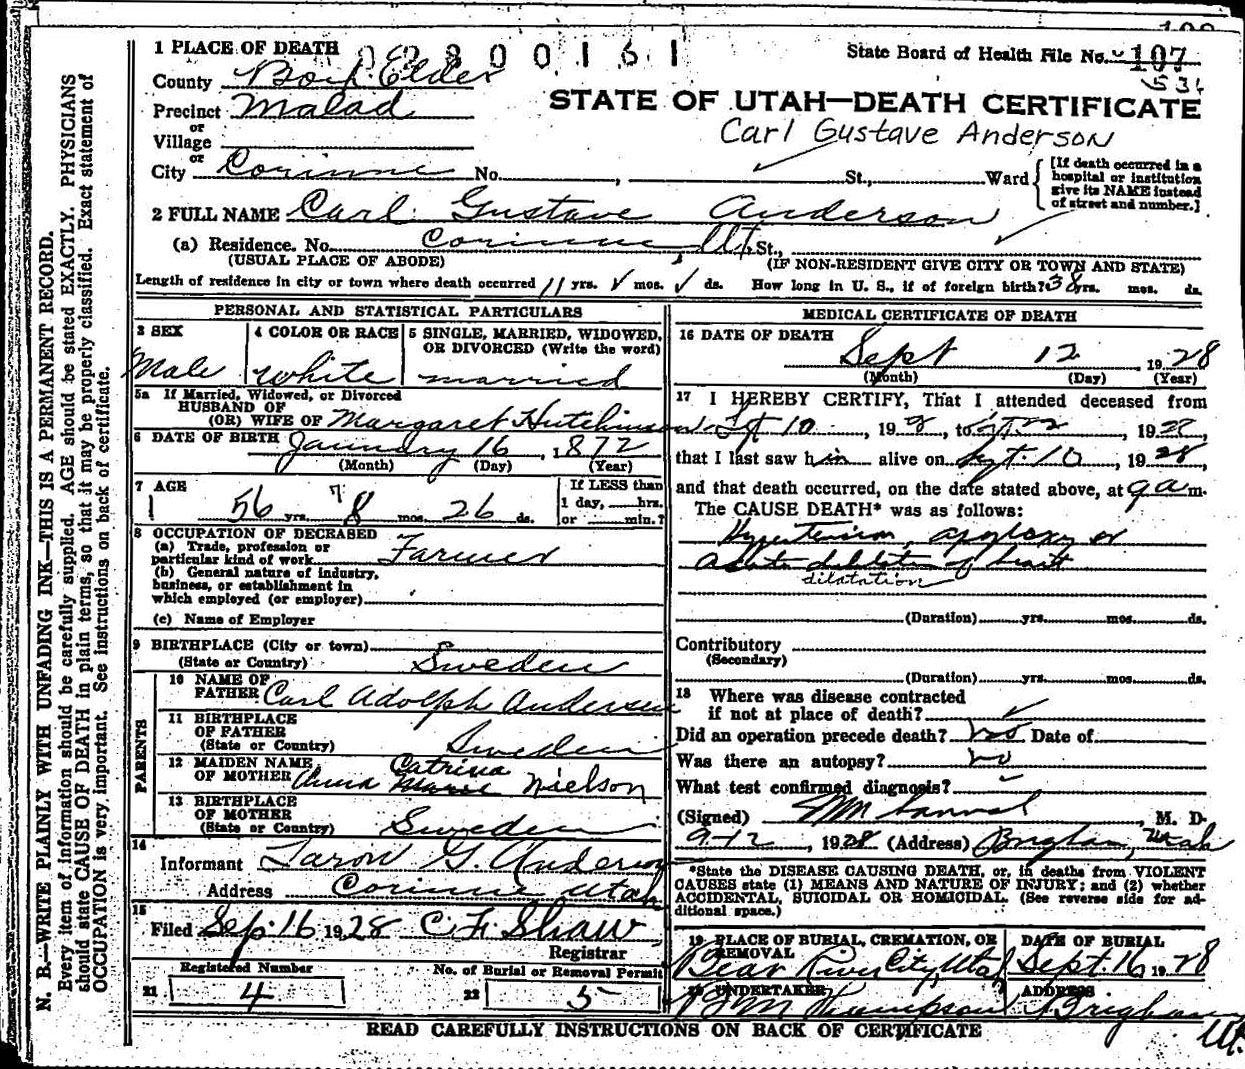 1 PLACE OF DEATH
State Board of Health File No. 107
County Box Elder
534
Precinct Malad
STATE OF UTAH—DEATH CERTIFICATE
or
Village
Carl Gustave Anderson
or
City Corinne No. , St., Ward
[If death occurred in a hospital or institution give its NAME instead of street and number.]
2 FULL NAME Carl Gustave Anderson
(a) Residence. No. Corinne Ut. St.,
(USUAL PLACE OF ABODE) (IF NON-RESIDENT GIVE CITY OR TOWN AND STATE)
Length of residence in city or town where death occurred 11 yrs. mos. ds. How long in U. S., if of foreign birth? 38 yrs. mos. ds.
PERSONAL AND STATISTICAL PARTICULARS
3 SEX 4 COLOR OR RACE 5 SINGLE, MARRIED, WIDOWED, OR DIVORCED (Write the word)
Male white married
5a If Married, Widowed, or Divorced
HUSBAND OF
(OR) WIFE OF Margaret Hutchinson
6 DATE OF BIRTH January 16, 1872
(Month) (Day) (Year)
7 AGE If LESS than
56 yrs. 8 mos. 26 ds. 1 day, hrs.
7
or min.?
8 OCCUPATION OF DECEASED
(a) Trade, profession or
particular kind of work Farmer
(b) General nature of industry,
business, or establishment in
which employed (or employer)
(c) Name of Employer
9 BIRTHPLACE (City or town)
(State or Country) Sweden
PARENTS
10 NAME OF
FATHER Carl Adolph Andersen
11 BIRTHPLACE
OF FATHER
(State or Country) Sweden
12 MAIDEN NAME Catrina
OF MOTHER Anna Marie Nielson
13 BIRTHPLACE
OF MOTHER
(State or Country) Sweden
14
Informant G. Anderson
Address Corinne Utah
15
Filed Sep. 16 1928 C. F. Shaw
Registrar
Registered Number No. of Burial or Removal Permit
21 4 22 5
MEDICAL CERTIFICATE OF DEATH
16 DATE OF DEATH
Sept 12, 1928
(Month) (Day) (Year)
17 I HEREBY CERTIFY, That I attended deceased from
10, 19 , to , 19 ,
that I last saw him alive on Sept 10, 1928,
and that death occurred, on the date stated above, at 9 a m.
The CAUSE DEATH* was as follows:
Hypertension, apoplexy or
Acute dilatation of heart
dilatation
(Duration) yrs. mos. ds.
Contributory
(Secondary)
(Duration) yrs. mos. ds.
18 Where was disease contracted
if not at place of death?
Did an operation precede death? Date of
Was there an autopsy? no
What test confirmed diagnosis?
(Signed) , M. D.
9-12, 1928 (Address) Brigham, Utah
*State the DISEASE CAUSING DEATH, or, in deaths from VIOLENT
CAUSES state (1) MEANS AND NATURE OF INJURY; and (2) whether
ACCIDENTAL, SUICIDAL OR HOMICIDAL. (See reverse side for additional space.)
19 PLACE OF BURIAL, CREMATION, OR REMOVAL DATE OF BURIAL
Bear River City, Utah Sept. 16 1928
20 UNDERTAKER ADDRESS
Thompson Brigham Ut.
READ CAREFULLY INSTRUCTIONS ON BACK OF CERTIFICATE
N. B.—WRITE PLAINLY WITH UNFADING INK—THIS IS A PERMANENT RECORD.
Every item of information should be carefully supplied. AGE should be stated EXACTLY. PHYSICIANS
should state CAUSE OF DEATH in plain terms, so that it may be properly classified. Exact statement of
OCCUPATION is very important. See instructions on back of certificate.